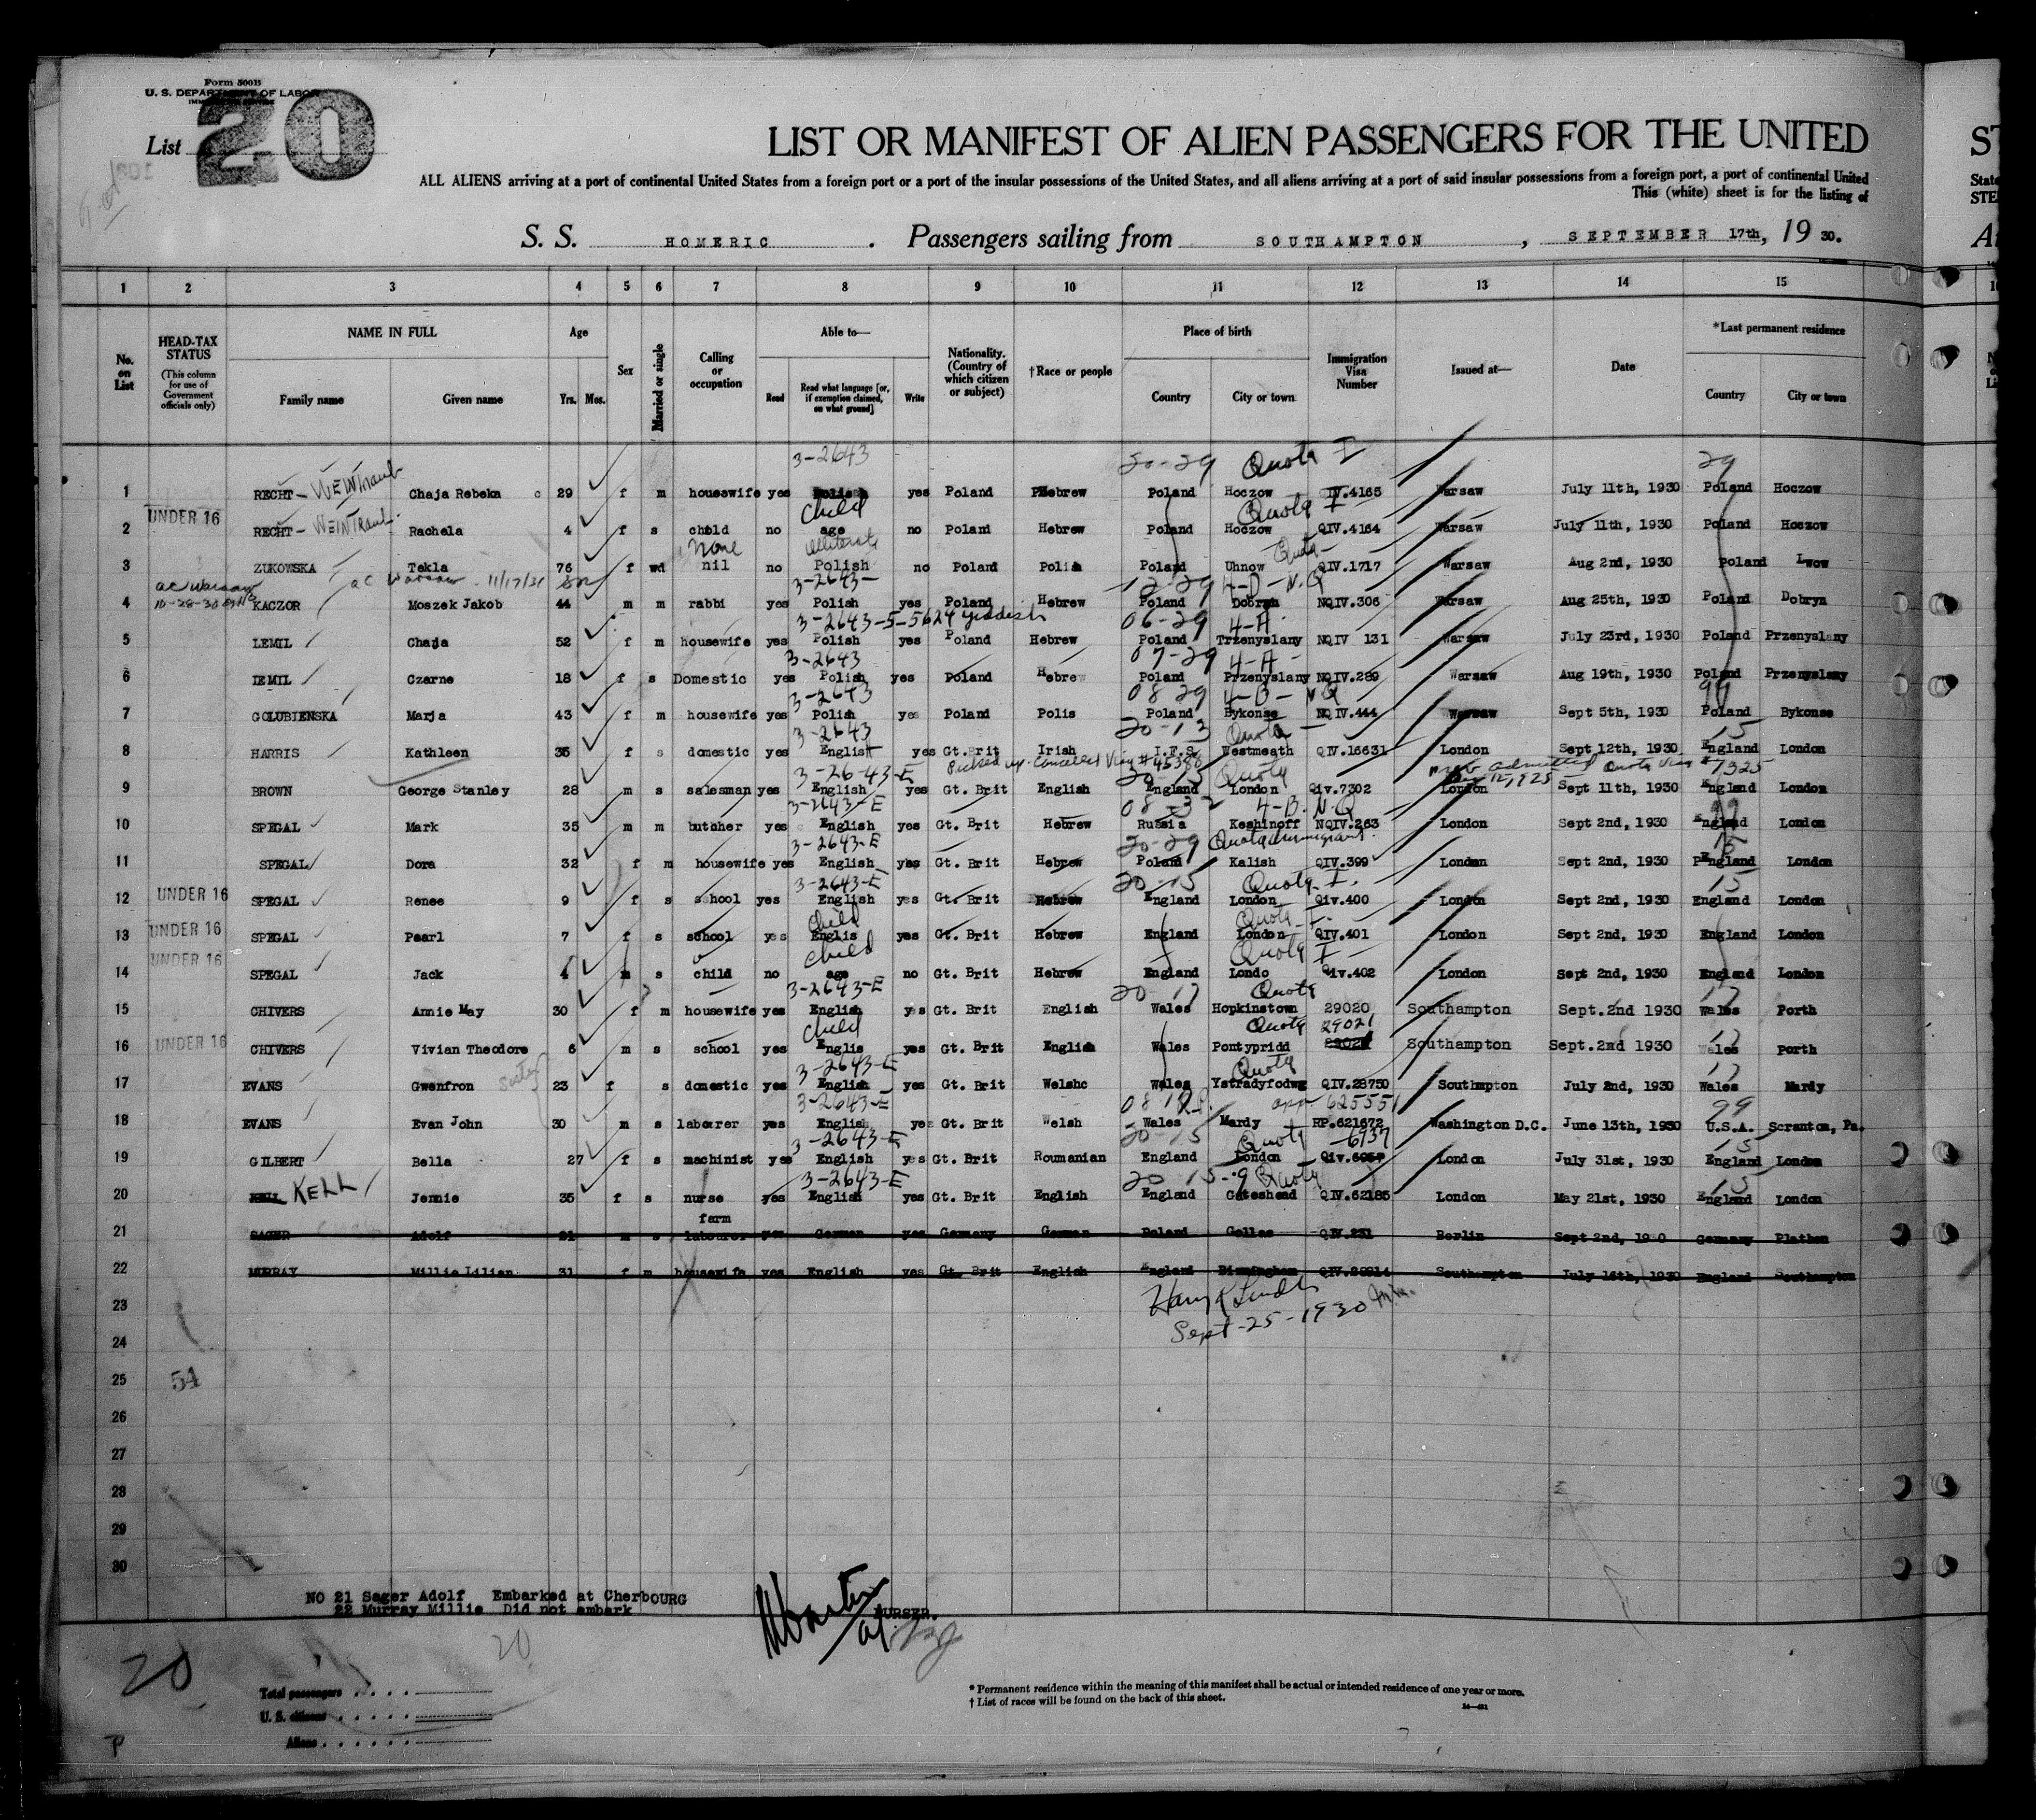 Form 500B
U. S. DEPARTMENT OF LABOR
List 20
LIST OR MANIFEST OF ALIEN PASSENGERS FOR THE UNITED
ALL ALIENS arriving at a port of continental United States from a foreign port or a port of the insular possessions of the United States, and all aliens arriving at a port of said insular possessions from a foreign port, a port of continental United
This (white) sheet is for the listing of
S. S. HOMERIC . Passengers sailing from SOUTHAMPTON , SEPTEMBER 17th, 19 30.
1 2 3 4 5 6 7 8 9 10 11 12 13 14 15
No. on List
HEAD-TAX STATUS (This column for use of Government officials only)
NAME IN FULL Family name Given name
Age Yrs. Mos.
Sex
Married or single
Calling or occupation
Able to— Read Read what language [or, if exemption claimed, on what ground] Write
Nationality. (Country of which citizen or subject)
†Race or people
Place of birth Country City or town
Immigration Visa Number
Issued at—
Date
*Last permanent residence Country City or town
3-2643 20-29 Quota I 29
1 RECHT- WEINTraub Chaja Rebeka c 29 f m housewife yes Polish yes Poland Hebrew Poland Hoczow IV.4165 Warsaw July 11th, 1930 Poland Hoczow
UNDER 16 Child Quota I
2 RECHT- WEINTraub. Rachela 4 f s child no age no Poland Hebrew Poland Hoczow QIV.4164 Warsaw July 11th, 1930 Poland Hoczow
None illiterate Quota
3 ZUKOWSKA Tekla 76 f wd nil no Polish no Poland Polish Poland Uhnow QIV.1717 Warsaw Aug 2nd, 1930 Poland Lwow
ac Warsaw ac Warsaw - 11/17/31 3-2643- 12-29 4-D-N.Q
4 KACZOR Moszek Jakob 44 m m rabbi yes Polish yes Poland Hebrew Poland Dobryn NQIV.306 Warsaw Aug 25th, 1930 Poland Dobryn
3-2643-5-5624 Yiddish 06-29 4-A
5 LEMIL Chaja 52 f m housewife yes Polish yes Poland Hebrew Poland Trzenyslany NQIV 131 Warsaw July 23rd, 1930 Poland Przenyslany
3-2643 07-29 4-A-
6 IEMIL Czarne 18 f s Domestic yes Polish yes Poland Hebrew Poland Przenyslany NQIV.289 Warsaw Aug 19th, 1930 Poland Przenyslany
3-2643 08 29 4-B-NQ 99
7 GOLUBIENSKA Marja 43 f m housewife yes Polish yes Poland Polis Poland Bykonse NQIV.444 Warsaw Sept 5th, 1930 Poland Bykonse
3-2643 20-13 Quota 15
8 HARRIS Kathleen 35 f s domestic yes English yes Gt.Brit Irish I.F.S. Westmeath QIV.16631 London Sept 12th, 1930 England London
3-26-43-E 20-15 Quota admitted Quota Visa #7325
9 BROWN George Stanley 28 m s salesman yes English yes Gt. Brit English England London Qiv.7302 London Sept 11th, 1930 England London
3-2643-E 08-32 4-B. N.Q 99
10 SPEGAL Mark 35 m m butcher yes English yes Gt. Brit Hebrew Russia Keshinoff NQIV.263 London Sept 2nd, 1930 England London
3-2643-E 20-29 15
11 SPEGAL Dora 32 f m housewife yes English yes Gt. Brit Hebrew Poland Kalish QIV.399 London Sept 2nd, 1930 England London
3-2643-E 20-15 Quota I. 15
12 UNDER 16 SPEGAL Renee 9 f s school yes English yes Gt. Brit Hebrew England London Qiv.400 London Sept 2nd, 1930 England London
Child Quota I.
13 UNDER 16 SPEGAL Pearl 7 f s school yes Englis yes Gt. Brit Hebrew England London QIV.401 London Sept 2nd, 1930 England London
UNDER 16 Child Quota I
14 SPEGAL Jack 4 m s child no age no Gt. Brit Hebrew England Londo Qiv.402 London Sept 2nd, 1930 England London
3-2643-E 20-17 Quota 17
15 CHIVERS Annie May 30 f m housewife yes English yes Gt. Brit English Wales Hopkinstown 29020 Southampton Sept.2nd 1930 Wales Porth
Child Quota 29021
16 UNDER 16 CHIVERS Vivian Theodore 6 m s school yes Englis yes Gt. Brit English Wales Pontypridd 29021 Southampton Sept.2nd 1930 Wales Porth
3-2643-E Quota 17
17 EVANS Gwenfron sister 23 f s domestic yes English yes Gt. Brit Welshc Wales Ystradyfodwg QIV.28750 Southmpton July 2nd, 1930 Wales Mardy
3-2643-E 08 17 625551 99
18 EVANS Evan John 30 m s labourer yes English yes Gt. Brit Welsh Wales Mardy RP.621672 Washington D.C. June 13th, 1930 U.S.A. Scranton, Pa.
3-2643-E 20-15 Quota -6937 15
19 GILBERT Bella 27 f s machinist yes English yes Gt. Brit Roumanian England London Qiv. London July 31st, 1930 England London
3-2643-E 20 15-9 Quota 15
20 KELL Jennie 35 f s nurse yes English yes Gt. Brit English England Gateshead QIV.62185 London May 21st, 1930 England London
farm
21 SAGER Adolf 21 m s labourer yes German yes Germany German Poland Gollas QIV.231 Berlin Sept 2nd, 1930 Germany Plathen
22 MURRAY Millie Lilian 31 f m housewife yes English yes Gt. Brit English England Birmingham QIV.28914 Southampton July 16th, 1930 England Southampton
23
Sept-25-1930
24
25 54
26
27
28
29
30
NO 21 Sager Adolf Embarked at CherbOURG
22 Murray Millie Did not embark
PURSER.
20 20
Total passengers . . . .
U. S. citizens . . . . .
Aliens . . . . . .
* Permanent residence within the meaning of this manifest shall be actual or intended residence of one year or more.
† List of races will be found on the back of this sheet.
P